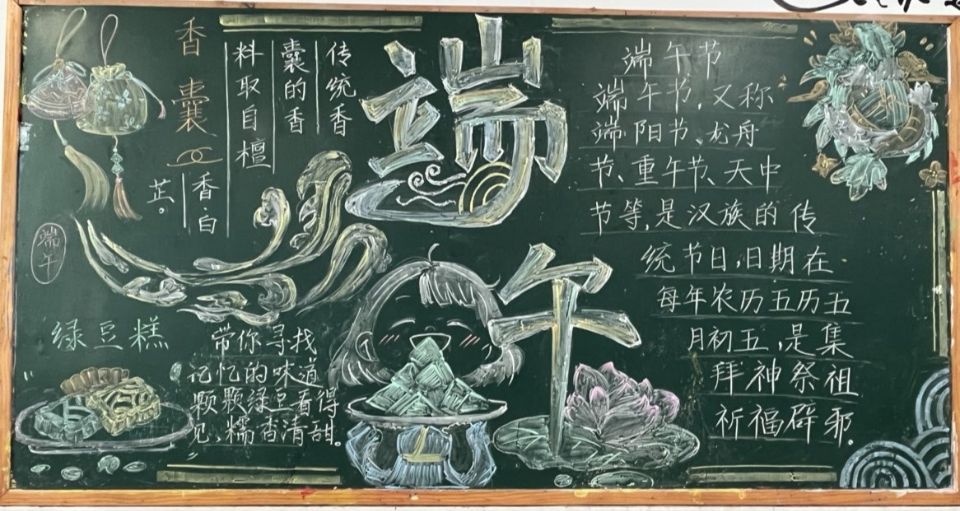 香囊
传统香
囊的香
料取自檀
香、白
芷。
端午
端午
绿豆糕
带你寻找
记忆的味道
颗颗绿豆看得
见，糯香清甜。
端午节
端午节，又称
端阳节、龙舟
节、重午节、天中
节等，是汉族的传
统节日，日期在
每年农历五历五
月初五，是集
拜神祭祖
祈福辟邪。